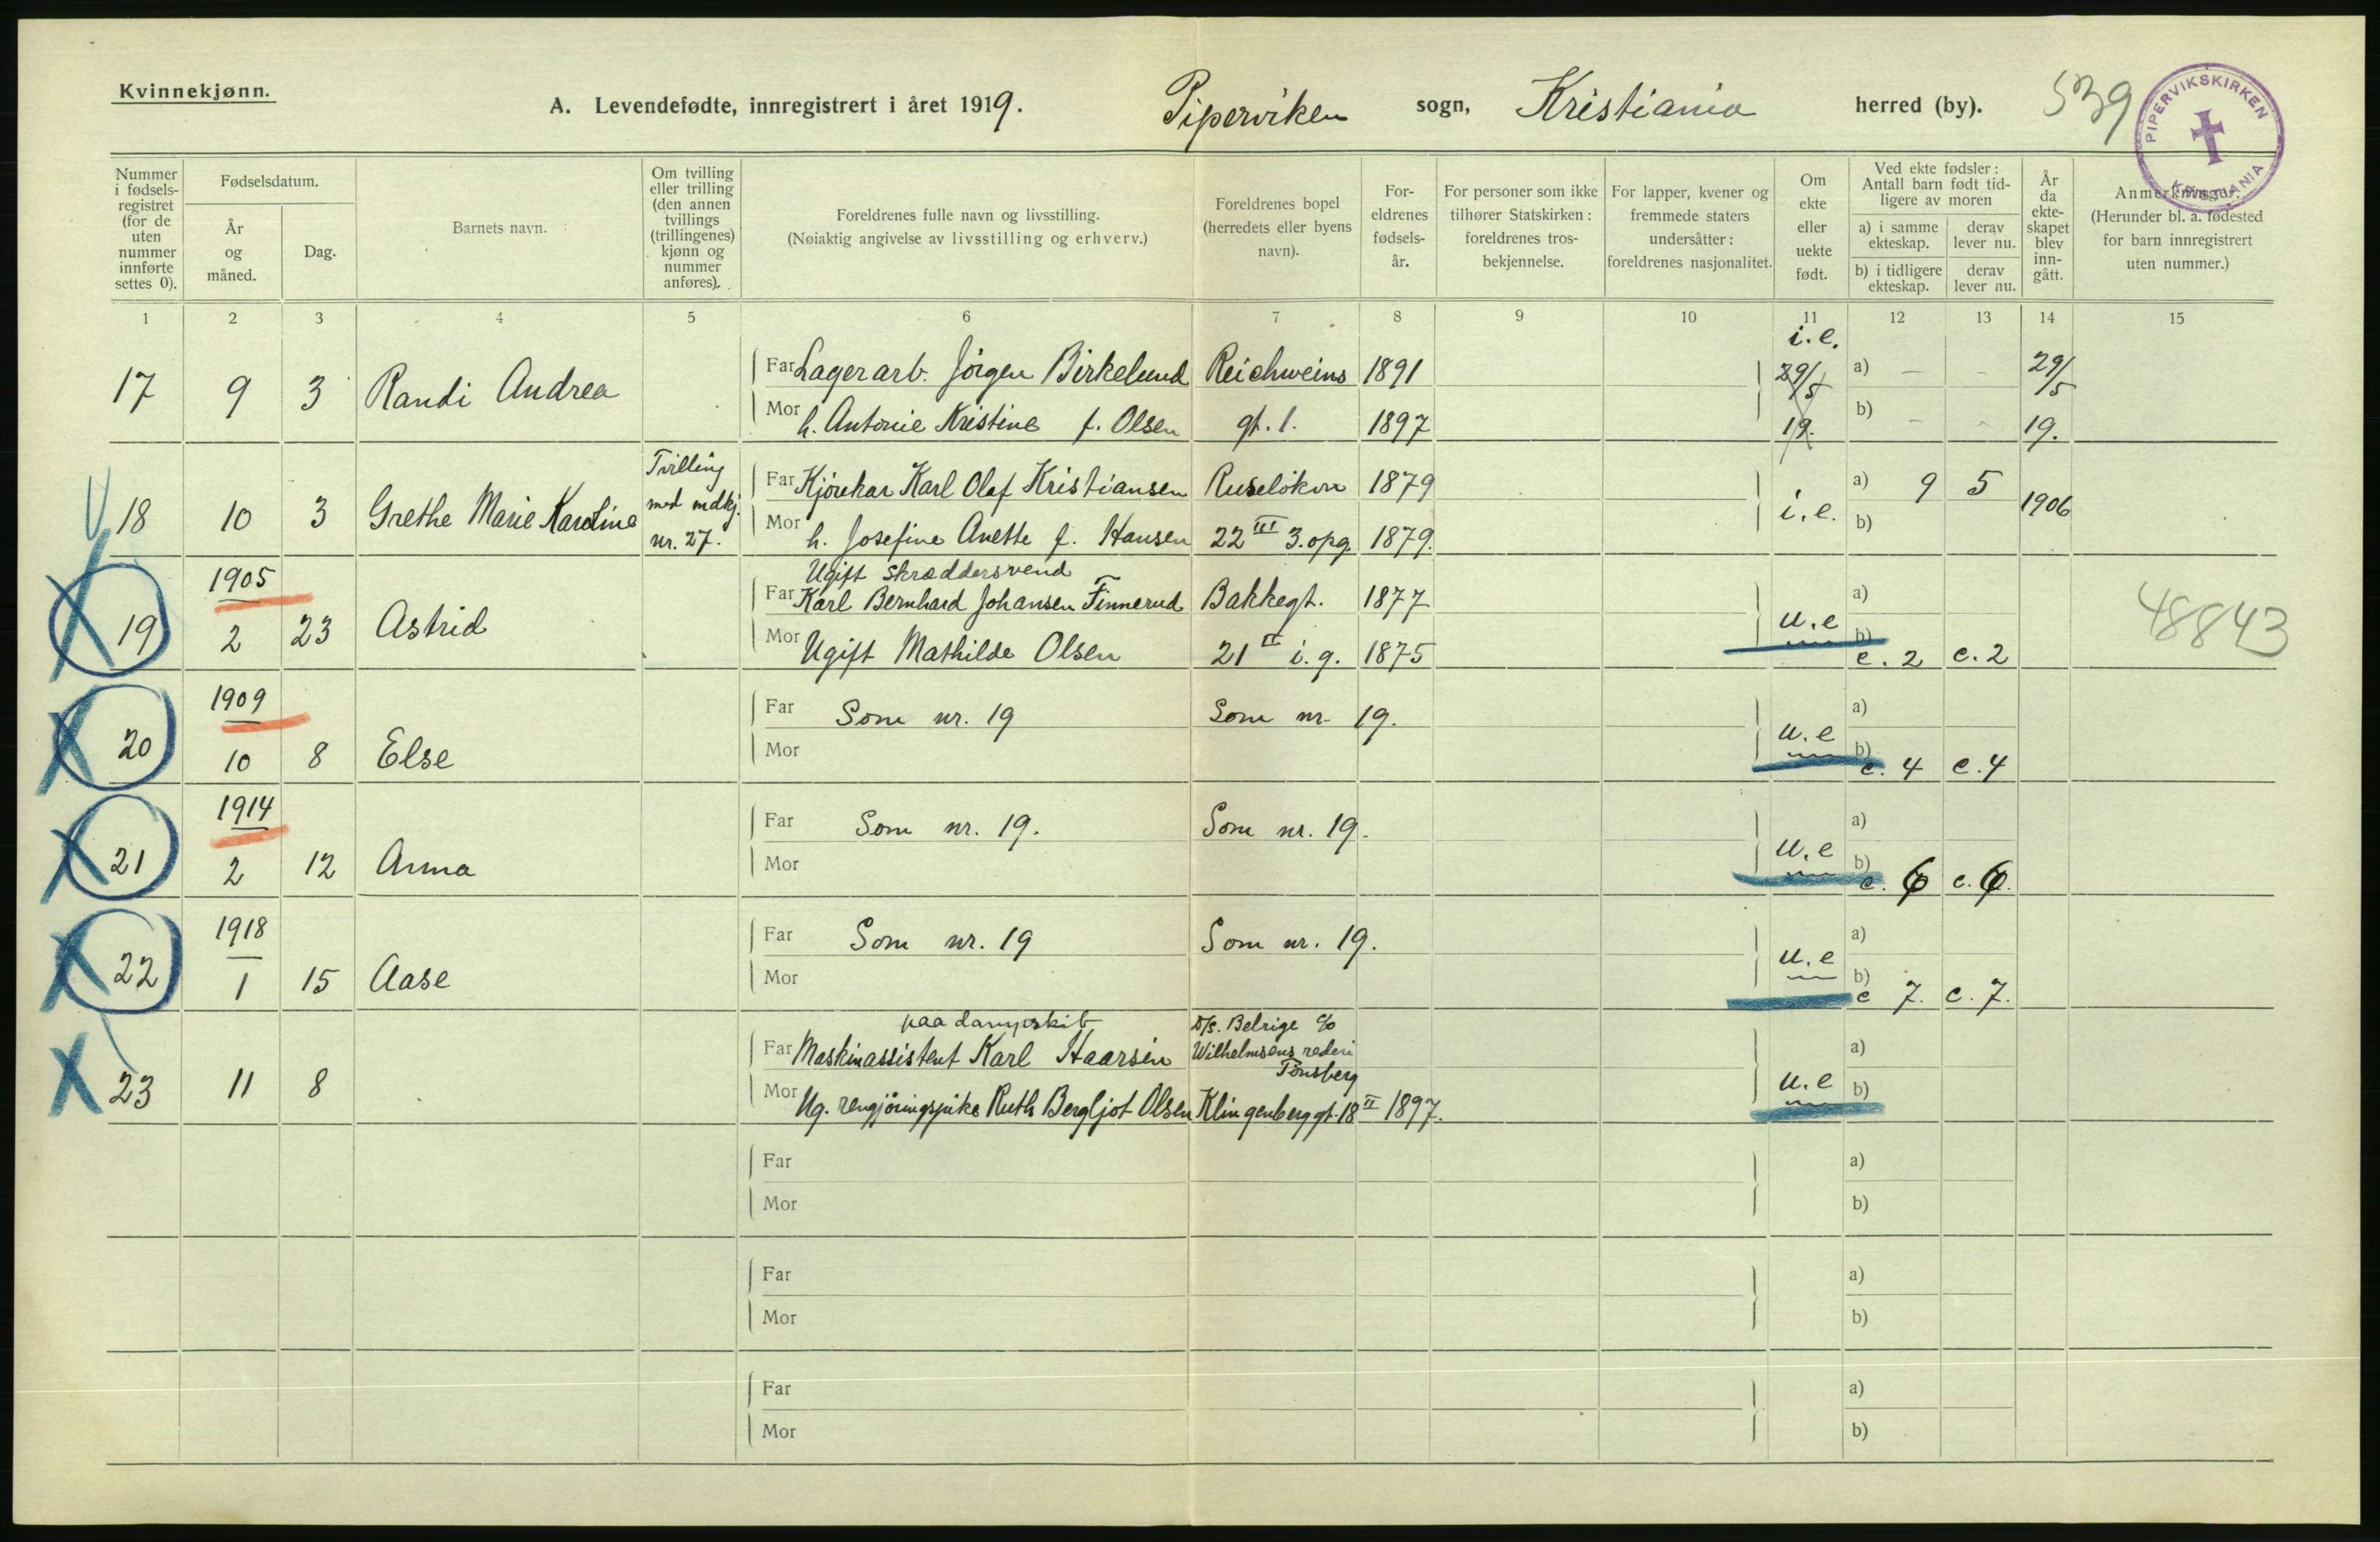 Kvinnekjønn.
A. Levendefødte, innregistrert i året 1919. Piperviken sogn, Kristiania herred (by). 539
PIPERVIKSKIRKEN KRISTIANIA
Nummer i fødsels-registret (for de uten nummer innførte settes 0).
Fødselsdatum.
År og måned.
Dag.
Barnets navn.
Om tvilling eller trilling (den annen tvillings (trillingenes) kjønn og nummer anføres).
Foreldrenes fulle navn og livsstilling.
(Nøiaktig angivelse av livsstilling og erhverv.)
Foreldrenes bopel (herredets eller byens navn).
For-eldrenes fødsels-år.
For personer som ikke tilhører Statskirken: foreldrenes tros-bekjennelse.
For lapper, kvener og fremmede staters undersåtter: foreldrenes nasjonalitet.
Om ekte eller uekte født.
Ved ekte fødsler: Antall barn født tid-ligere av moren
a) i samme ekteskap.
derav lever nu.
b) i tidligere ekteskap.
derav lever nu.
År da ekte-skapet blev inn-gått.
Anmerkninger.
(Herunder bl. a. fødested for barn innregistrert uten nummer.)
1 2 3 4 5 6 7 8 9 10 11 12 13 14 15
i. e.
17 9 3 Randi Andrea Far Lagerarb. Jörgen Birkelund Reichweins 1891 29/5 a) – – 29/5
Mor h. Antonie Kristine f. Olsen gt. 1. 1897 19. b) – – 19.
Tvilling
18 10 3 Grethe Marie Karoline med mdkj. Far Kjörekar Karl Olaf Kristiansen Ruselökvn 1879 i. e. a) 9 5 1906
nr. 27. Mor h. Josefine Anette f. Hansen 22 III 3. opg. 1879. b)
1905 Ugift skræddersvend
19 2 23 Astrid Far Karl Bernhard Johansen Finnerud Bakkegt. 1877 u. e a) 48843
Mor Ugift Mathilde Olsen 21 II i. g. 1875 b) c. 2 c. 2
1909
20 10 8 Else Far Som nr. 19 Som nr. 19. u. e a)
Mor b) c. 4 c. 4
1914
21 2 12 Anna Far Som nr. 19. Som nr. 19. u. e a)
Mor b) c. 6 c. 6.
1918
22 1 15 Aase Far Som nr. 19 Som nr. 19. u. e a)
Mor b) c 7. c. 7.
paa dampskib D/s. Belrige c/o
23 11 8 Far Maskinassistent Karl Haarsén Wilhelmsens rederi Tönsberg u. e a)
Mor Ug. rengjöringspike Ruth Bergljot Olsen Klingenberggt. 18 II 1897. b)
Far a)
Mor b)
Far a)
Mor b)
Far a)
Mor b)